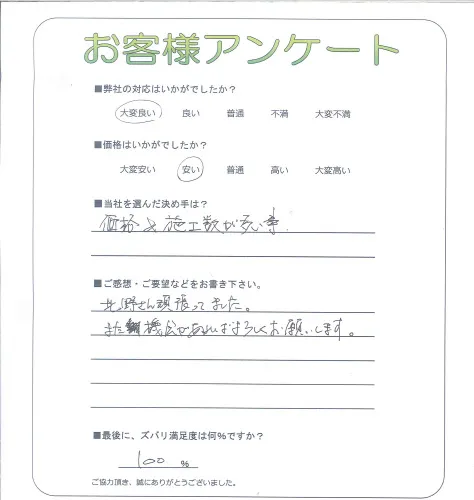 お客様アンケート
■弊社の対応はいかがでしたか?
大変良い 良い 普通 不満 大変不満
■価格はいかがでしたか?
大変安い 安い 普通 高い 大変高い
■当社を選んだ決め手は?
価格と施工数が多い事.
■ご感想・ご要望などをお書き下さい。
北野さん頑張ってました。
また機会があればよろしくお願いします。
■最後に、ズバリ満足度は何%ですか?
100 %
ご協力頂き、誠にありがとうございました。